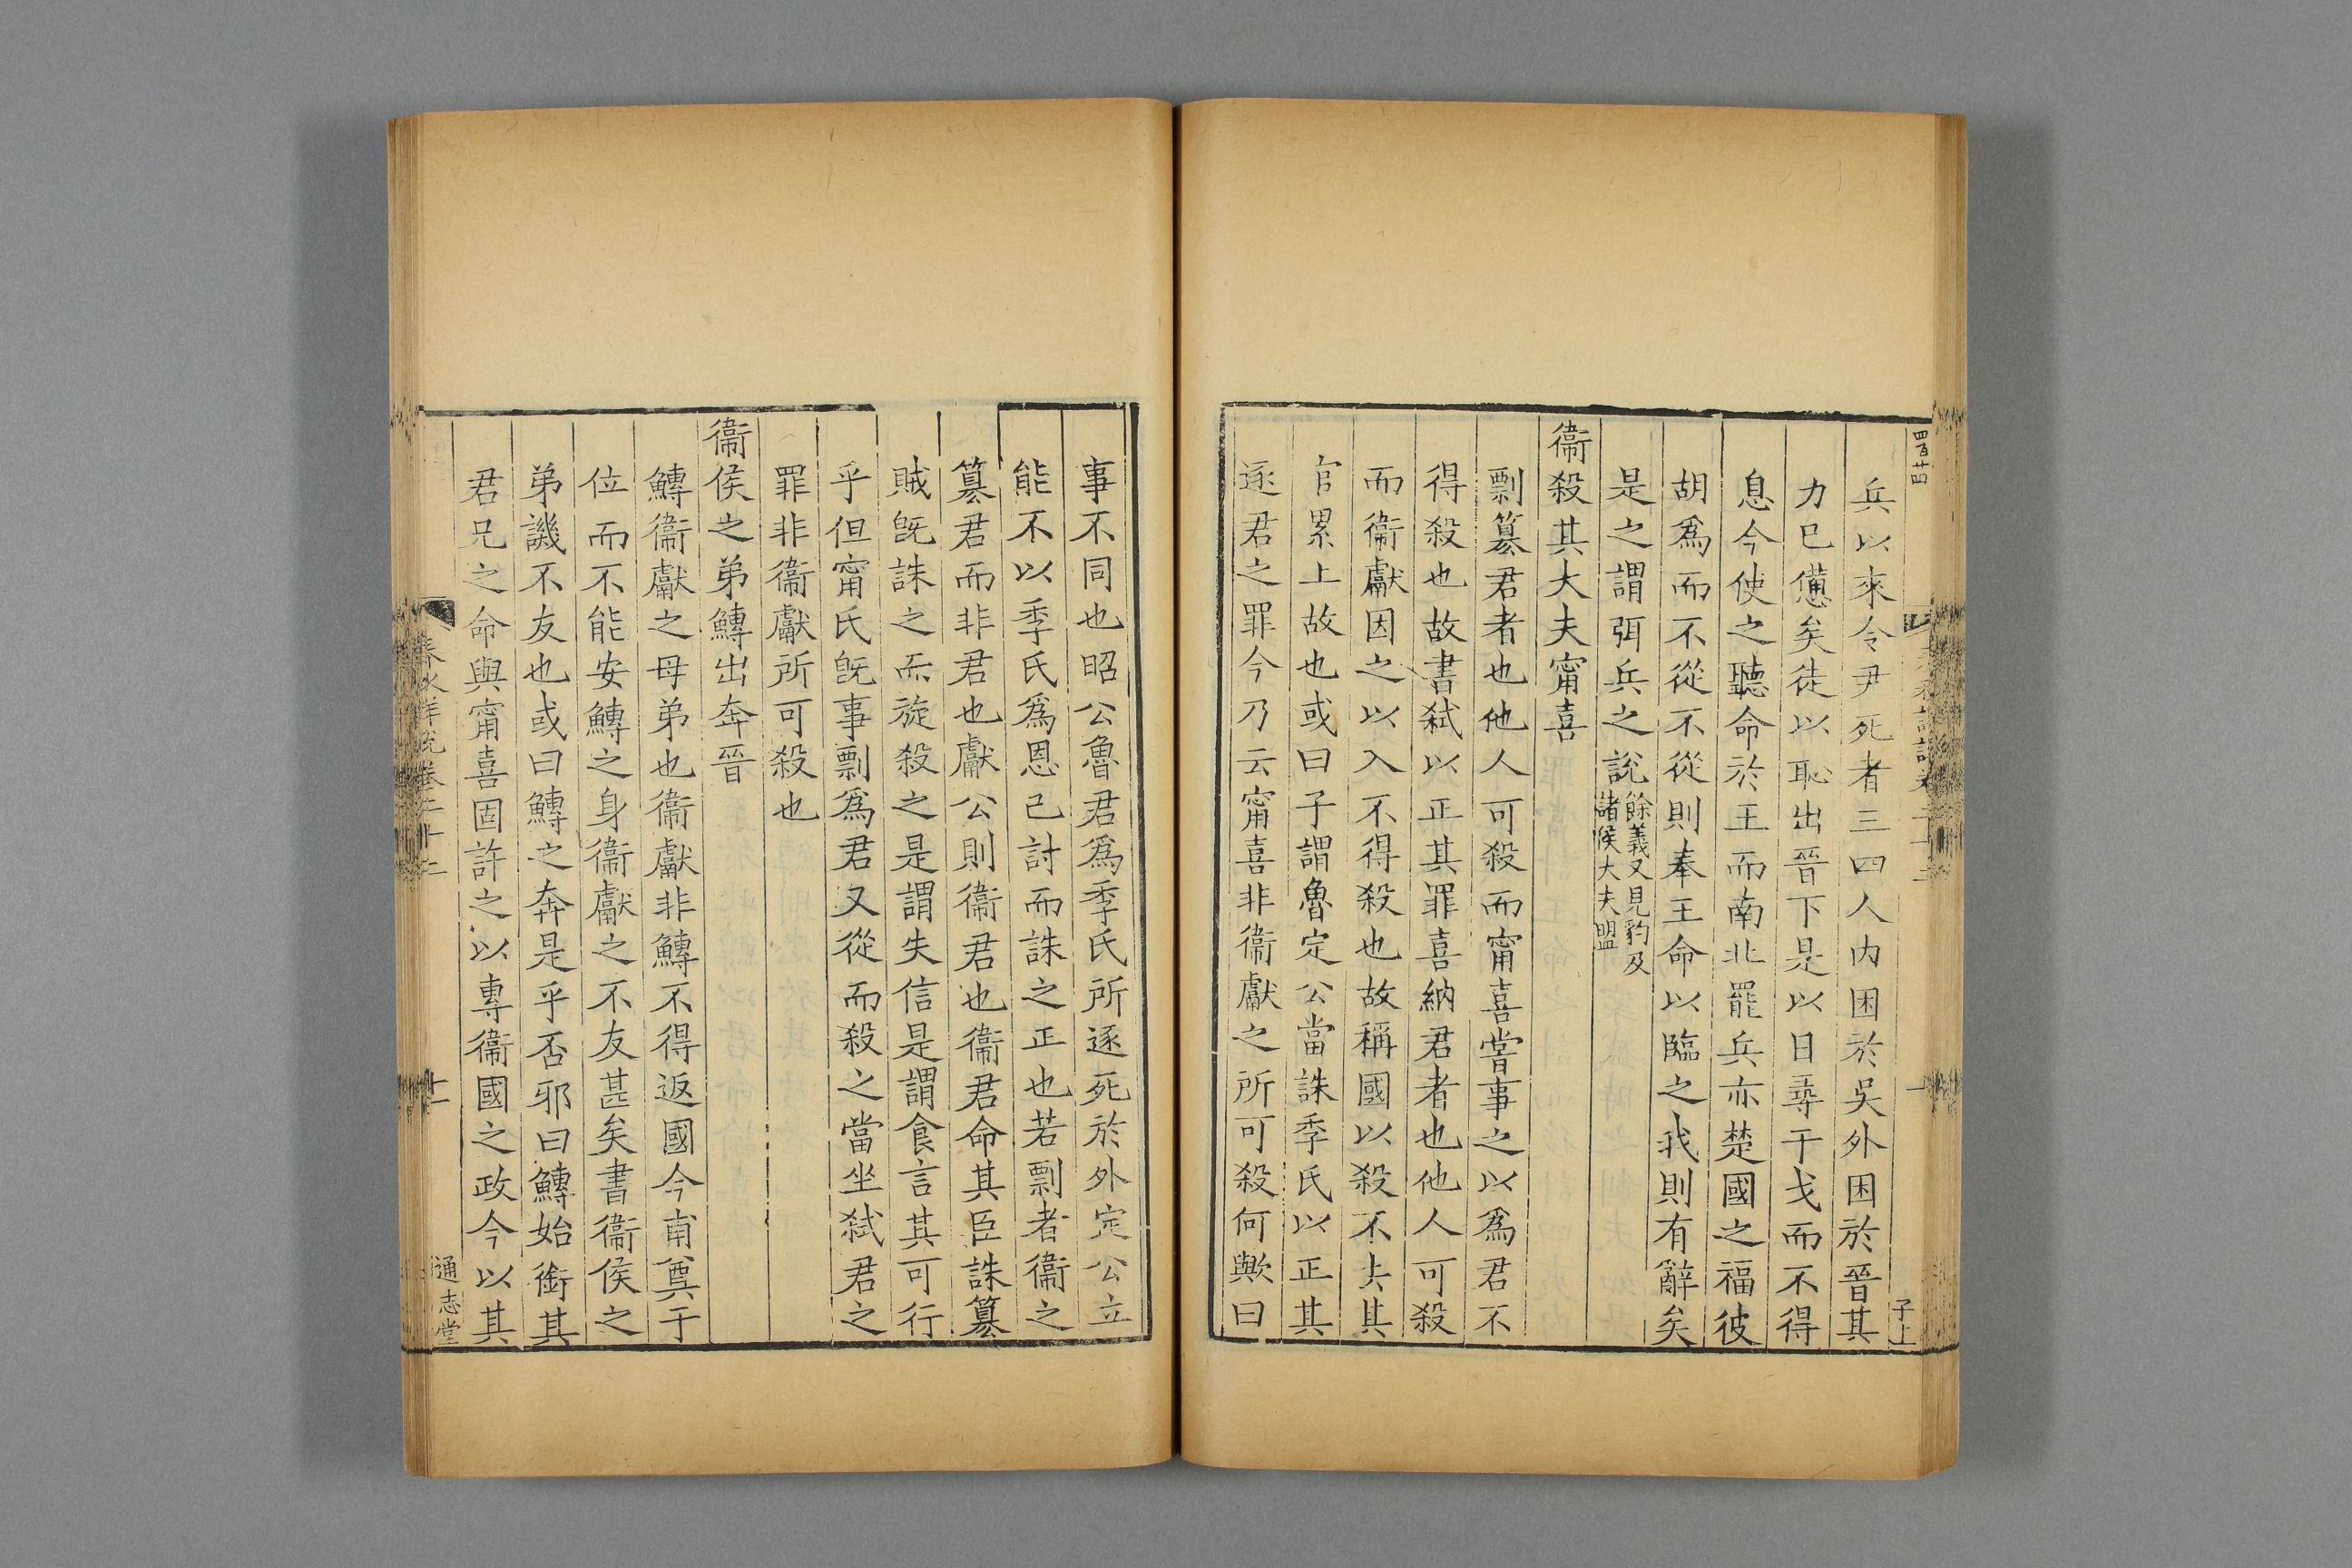 兵以來令尹死者三四人内困於吳外困於晉其
力已憊矣徒以恥出晉下是以日尋干戈而不得
息今使之聽命於王而南北罷兵亦楚國之福彼
胡爲而不從不從則奉王命以臨之我則有辭矣
是之謂弭兵之說餘義又見豹及諸侯大夫盟
衞殺其大夫甯喜
剽篡君者也他人可殺而甯喜甞事之以爲君不
得殺也故書弑以正其罪喜納君者也他人可殺
而衞獻因之以入不得殺也故稱國以殺不去其
官累上故也或曰子謂魯定公當誅季氏以正其
逐君之罪今乃云甯喜非衞獻之所可殺何歟曰
事不同也昭公魯君爲季氏所逐死於外定公立
能不以季氏爲恩己討而誅之正也若剽者衞之
篡君而非君也獻公則衞君也衞君命其臣誅篡
賊旣誅之而旋殺之是謂失信是謂食言其可行
乎但甯氏旣事剽爲君又從而殺之當坐弑君之
罪非衞獻所可殺也
衞侯之弟鱄出奔晉
鱄衞獻之母弟也衞獻非鱄不得返國今甫奠于
位而不能安鱄之身衞獻之不友甚矣書衞侯之
弟譏不友也或曰鱄之奔是乎否邪曰鱄始銜其
君兄之命與甯喜固許之以專衞國之政今以其
春秋詳說卷二十二
十一
通志堂
四百廿四
子上